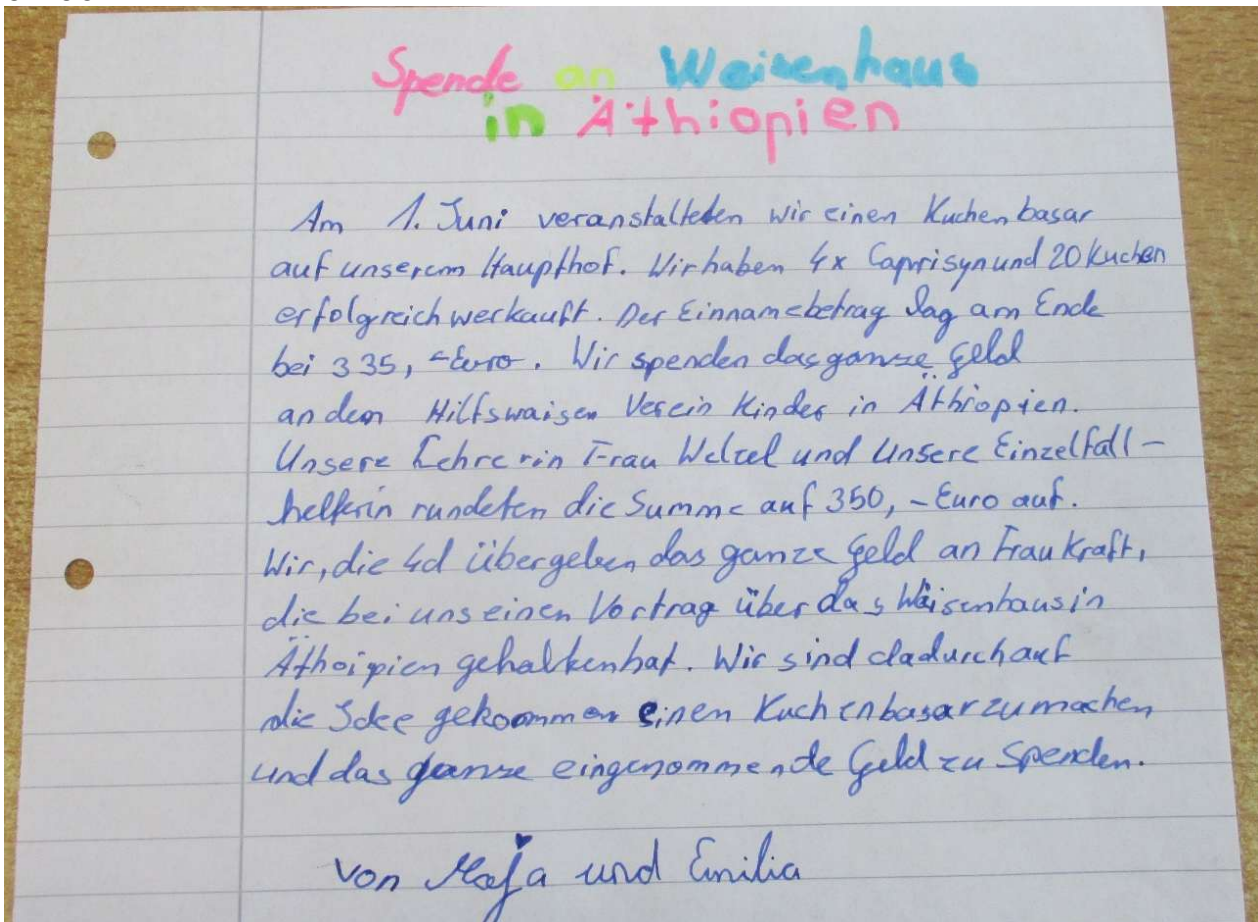 Spende an Waisenhaus
in Äthiopien
Am 1. Juni veranstalteten wir einen Kuchenbasar
auf unserem Haupthof. Wir haben 4x Caprisyn und 20 Kuchen
erfolgreich werkauft. Der Einnamebetrag lag am Ende
bei 335,- Euro. Wir spenden das ganze Geld
an den Hilfswaisen Verein Kinder in Äthiopien.
Unsere Lehrerin Frau Welzel und Unsere Einzelfall-
helferin rundeten die Summe auf 350,- Euro auf.
Wir, die 4d übergeben das ganze Geld an Frau Kraft,
die bei uns einen Vortrag über das Waisenhaus in
Äthoipien gehalten hat. Wir sind dadurch auf
die Idee gekommen einen Kuchenbasar zu machen
und das ganze eingenommende Geld zu Spenden.
von Maja und Emilia